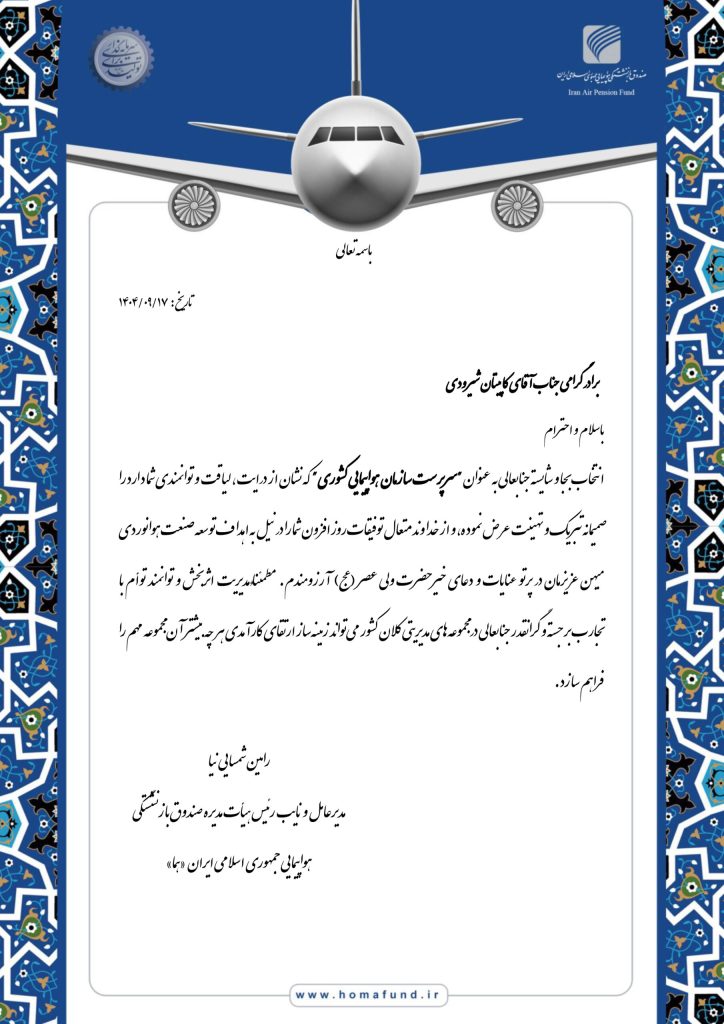 سرمایه‌گذاری
برای
تولید
صندوق بازنشستگی هواپیمایی جمهوری اسلامی ایران
Iran Air Pension Fund
باسمه تعالی
تاریخ: ۱۴۰۴/۰۹/۱۷
برادر گرامی جناب آقای کاپیتان شیرودی
با سلام و احترام
انتخاب بجا و شایسته جنابعالی به عنوان "سرپرست سازمان هواپیمایی کشوری" که نشان از درایت، لیاقت و توانمندی شما دارد را
صمیمانه تبریک و تهنیت عرض نموده، و از خداوند متعال توفیقات روز افزون شما را در نیل به اهداف توسعه صنعت هوانوردی
میهن عزیزمان در پرتو عنایات و دعای خیر حضرت ولی عصر (عج) آرزومندم. مطمئنا مدیریت اثربخش و توانمند توأم با
تجارب برجسته و گرانقدر جنابعالی در مجموعه های مدیریتی کلان کشور می تواند زمینه ساز ارتقای کارآمدی هر چه بیشتر آن مجموعه مهم را
فراهم سازد.
رامین شمسایی نیا
مدیرعامل و نایب رئیس هیأت مدیره صندوق بازنشستگی
هواپیمایی جمهوری اسلامی ایران «هما»
www.homafund.ir